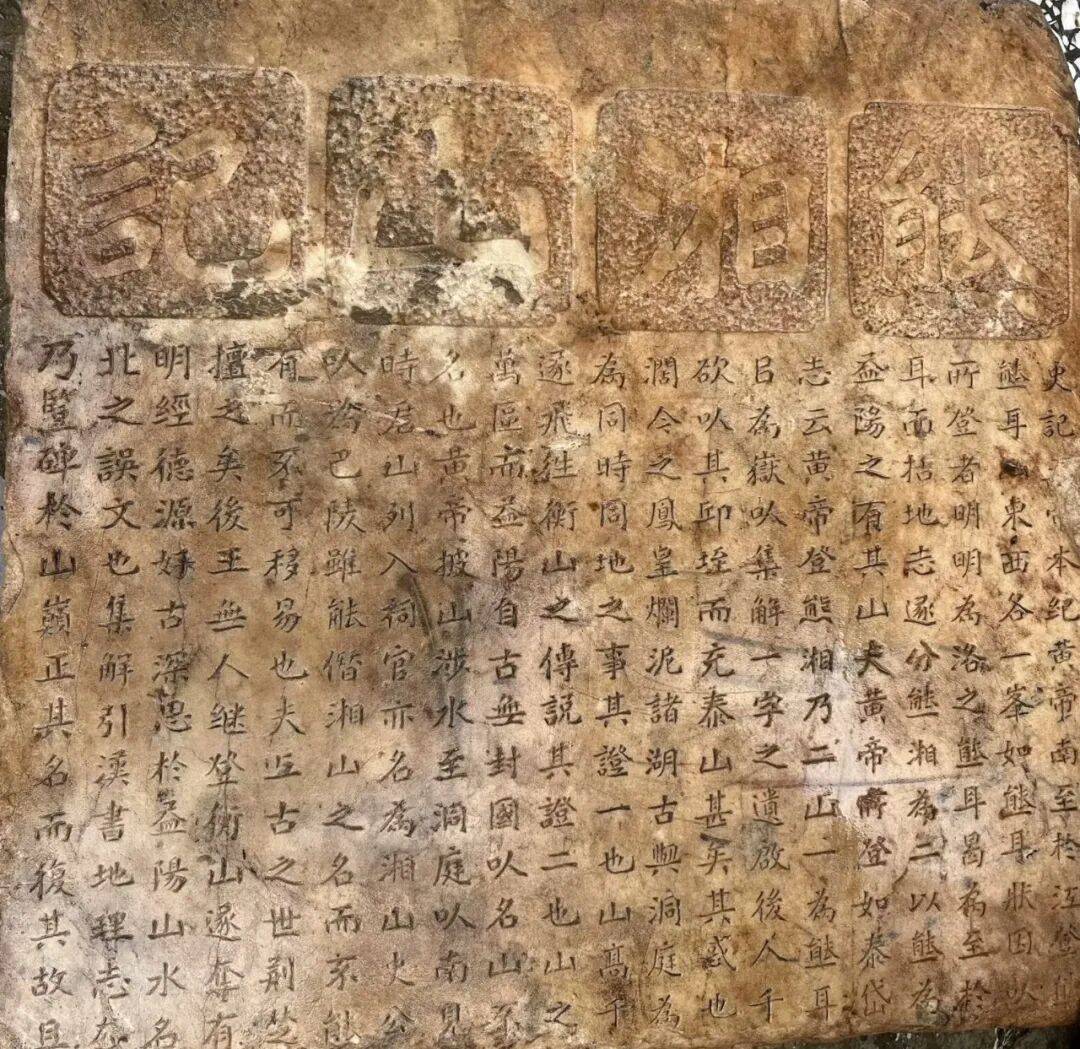 熊湘山記
史記帝本紀黃帝南至於江登熊
熊耳山東西各一峯如熊耳狀因以
所登者明明為洛之熊耳曷為至於
耳而括地志遂分熊湘為二以熊為
益陽之有其山夫黃帝嘗登如泰岱
志云黃帝登熊湘乃二山一為熊耳
㠯為嶽㕥集解一字之遺啟後人千
欲㕥其邱垤而充泰山甚矣其惑也
濶今之鳳皇爛泥諸湖古與洞庭為
為同時同地之事其證一也山高千
遂飛經衡山之傳說其證二也山之
萬區而益陽自古無封國㕥名山不
名也黃帝披山涉水至洞庭㕥南見
時君山列入祠官亦名為湘山史公
㕥為巴陵雖能僭湘山之名而不能
有而不可移易也夫亙古之世荊楚
擅之矣後王無人継登衡山遂奪有
明經德源好古深思於益陽山水名
北之誤文也集解引漢書地理志在
乃豎碑於山巔正其名而復其故且